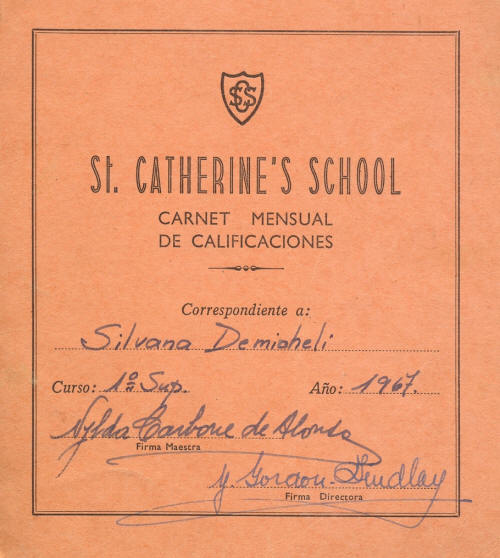 SCS
St. CATHERINE'S SCHOOL
CARNET MENSUAL
DE CALIFICACIONES
Correspondiente a:
Silvana Demicheli
Curso: 1º Sup. Año: 1967.
Nylda Carbone de Alonso
Firma Maestra
Y. Gordon. Findlay
Firma Directora